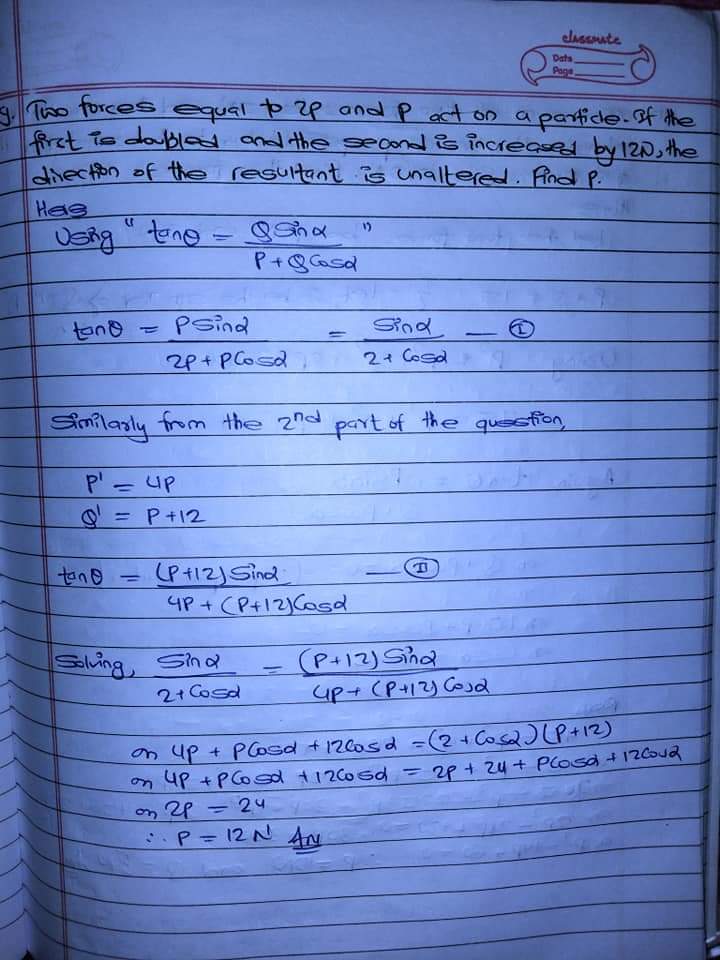 classmate
Date
Page
g. Two forces equal to 2p and p act on a particle. If the
first is doubled and the second is increased by 12N, the
direction of the resultant is unaltered. Find P.
Here
Using " tanθ = QSinα / P + QCosα "
tanθ = PSinα / 2P + PCosα = Sinα / 2 + Cosα — (I)
Similarly from the 2nd part of the question,
P' = 4P
Q' = P + 12
tanθ = (P+12)Sinα / 4P + (P+12)Cosα — (II)
Solving, Sinα / 2 + Cosα = (P+12) Sinα / 4P + (P+12) Cosα
or 4P + PCosα + 12Cosα = (2 + Cosα)(P+12)
or 4P + PCosα + 12Cosα = 2P + 24 + PCosα + 12Cosα
or 2P = 24
∴ P = 12N An